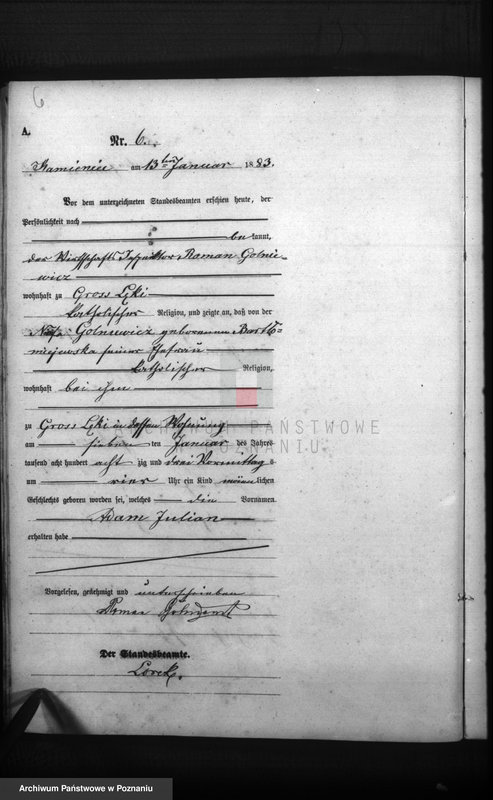 6
A.
Nr. 6.
Kamieniec, am 13ten Januar 1883.
Vor dem unterzeichneten Standesbeamten erschien heute, der
Persönlichkeit nach
be kannt,
der Wirthschafts Inspektor Roman Golnie-
wicz
wohnhaft zu Gross Łęki
katholischer Religion, und zeigte an, daß von der
Golniewicz geborenen Bartło-
miejewska seiner Ehefrau
katholischer Religion,
wohnhaft bei ihm
zu Gross Łęki in dessen Wohnung
am sieben ten Januar des Jahres
tausend acht hundert acht zig und drei Vormittag s
um vier Uhr ein Kind männ lichen
Geschlechts geboren worden sei, welches die Vornamen
Adam Julian
erhalten habe
Vorgelesen, genehmigt und unterschrieben
Roman
Der Standesbeamte.
Lorek.
ARCHIWUM PAŃSTWOWE
W POZNANIU
Archiwum Państwowe w Poznaniu